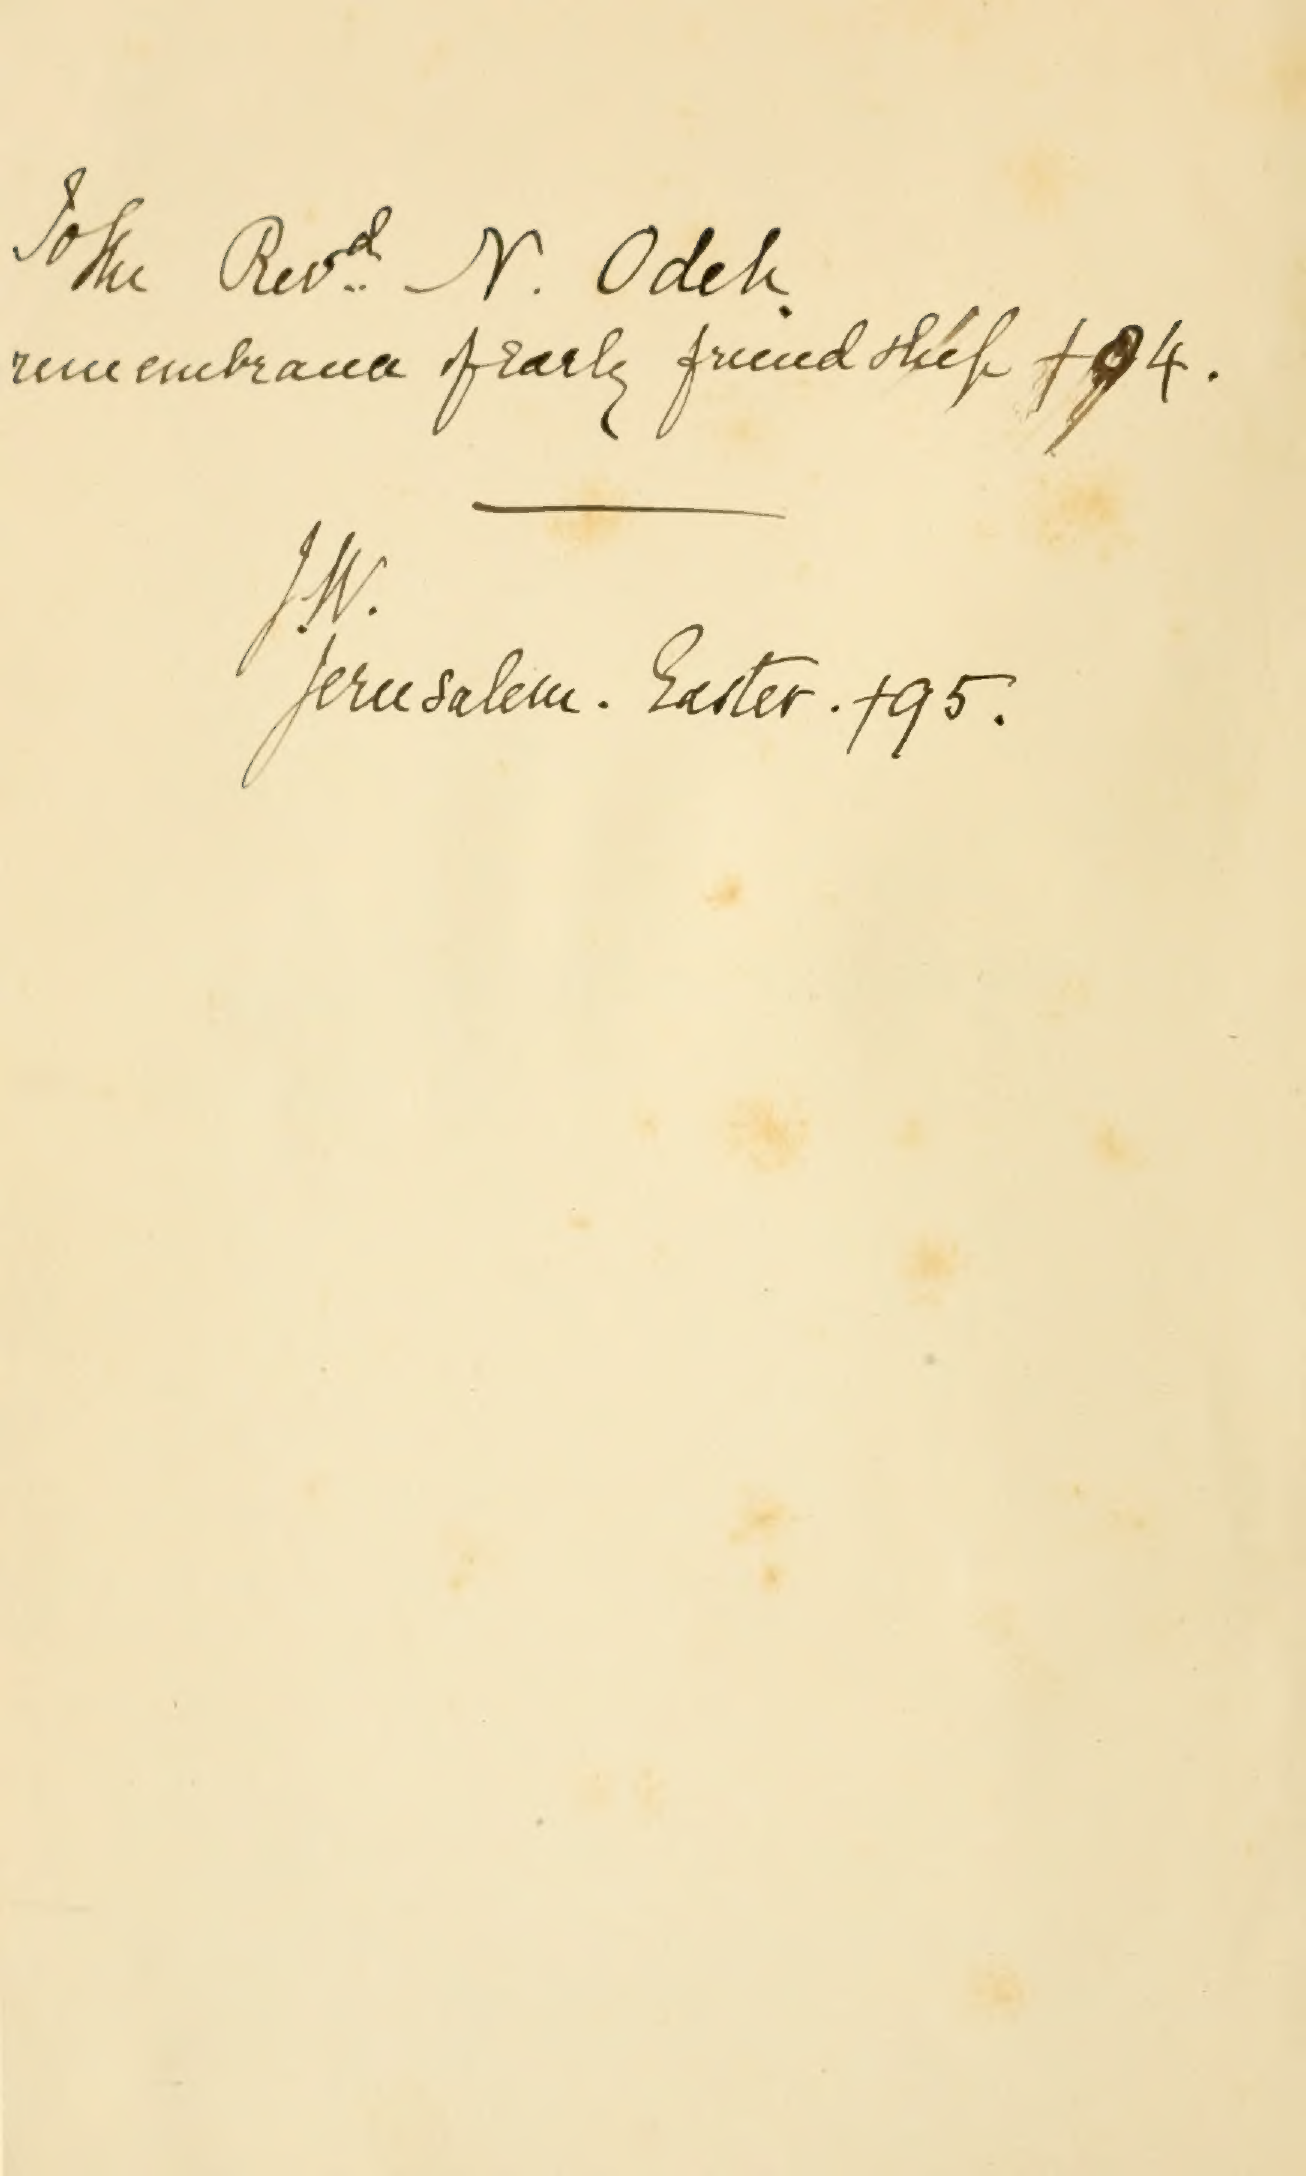 To the Revd. N. Odeh.
remembrance of early friendship †94.
J.W.
Jerusalem. Easter. †95.